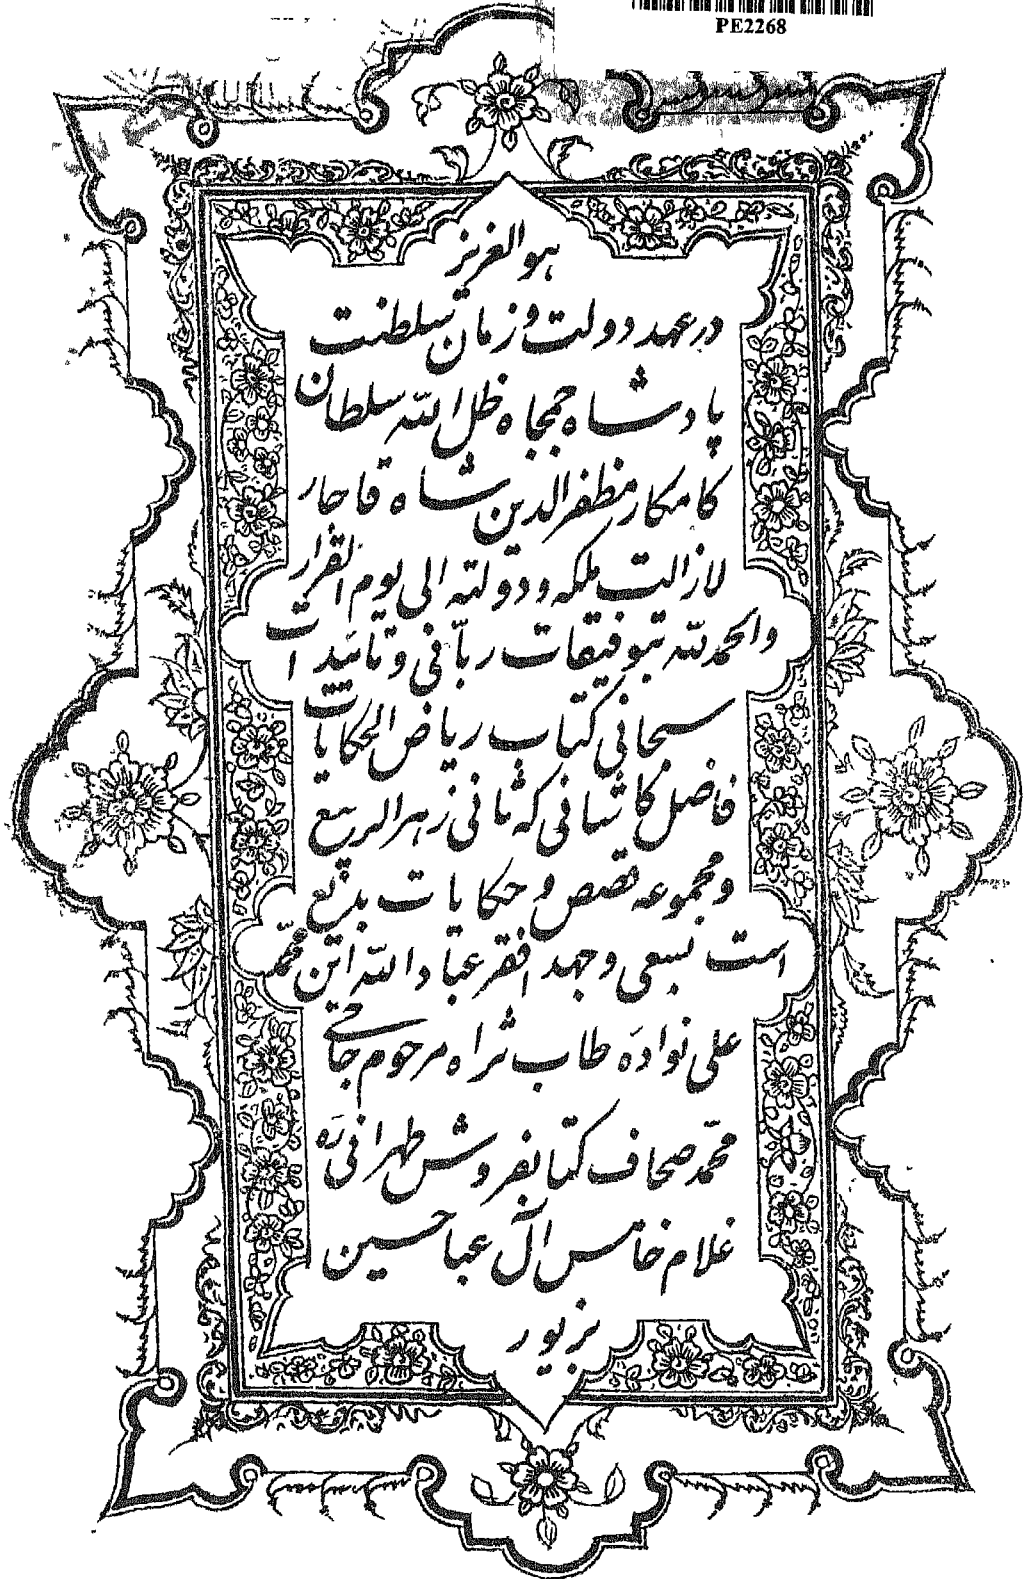 PE2268
هو العزیز
در عهد دولت و زمان سلطنت
پادشاه جمجاه ظل الله سلطان
کامکار مظفرالدین شاه قاجار
لازالت ملکه و دولته الی یوم القرار
والحمدلله بتوفیقات ربّانی و تائیدات
سبحانی کتاب ریاض الحکایات
فاضل کاشانی که ثانی زهرالربیع
و مجموعه قصص و حکایات بدیع
است بسعی و جهد افقر عباد الله ابن محمّد
علی نواده طاب ثراه مرحوم حاجی
محمّد صحاف کتابفروش طهرانی ره
غلام خامس آل عبا حسین
بزیور